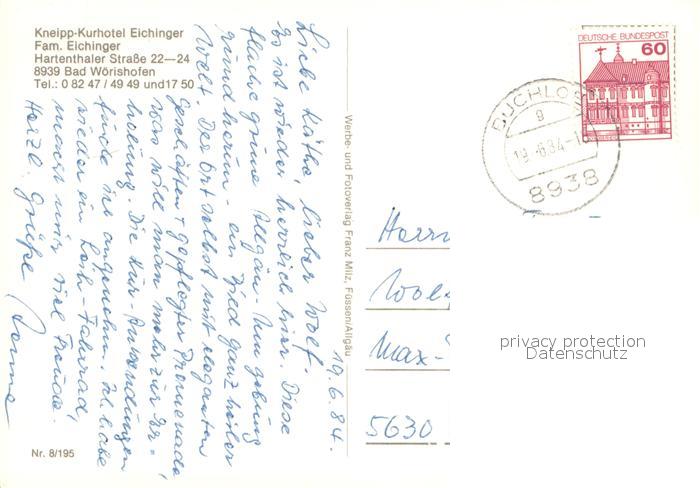 Kneipp-Kurhotel Eichinger
Fam. Eichinger
Hartenthaler Straße 22—24
8939 Bad Wörishofen
Tel.: 0 82 47 / 49 49 und 17 50
19.6.84.
Liebe Käthe, lieber Wolf.
Es ist wieder herrlich hier. Diese
flache grüne Allgäu-Umgebung
rund herum - ein Stück ganz heiler
Welt. Der Ort selbst mit eleganten
Geschäften + gepflegter Promenade
was will man mehr zur Er-
holung. Die Kur-Anwendungen
sind angenehm. Ich habe
wieder ein Leih-Fahrrad,
macht mir viel Freude.
Herzl. Grüße
Nr. 8/195
Werbe- und Fotoverlag Franz Milz, Füssen/Allgäu
DEUTSCHE BUNDESPOST
60
BUCHLO
g
19.-6.84-1
8938
Herrn
Max-
5630
privacy protection
Datenschutz